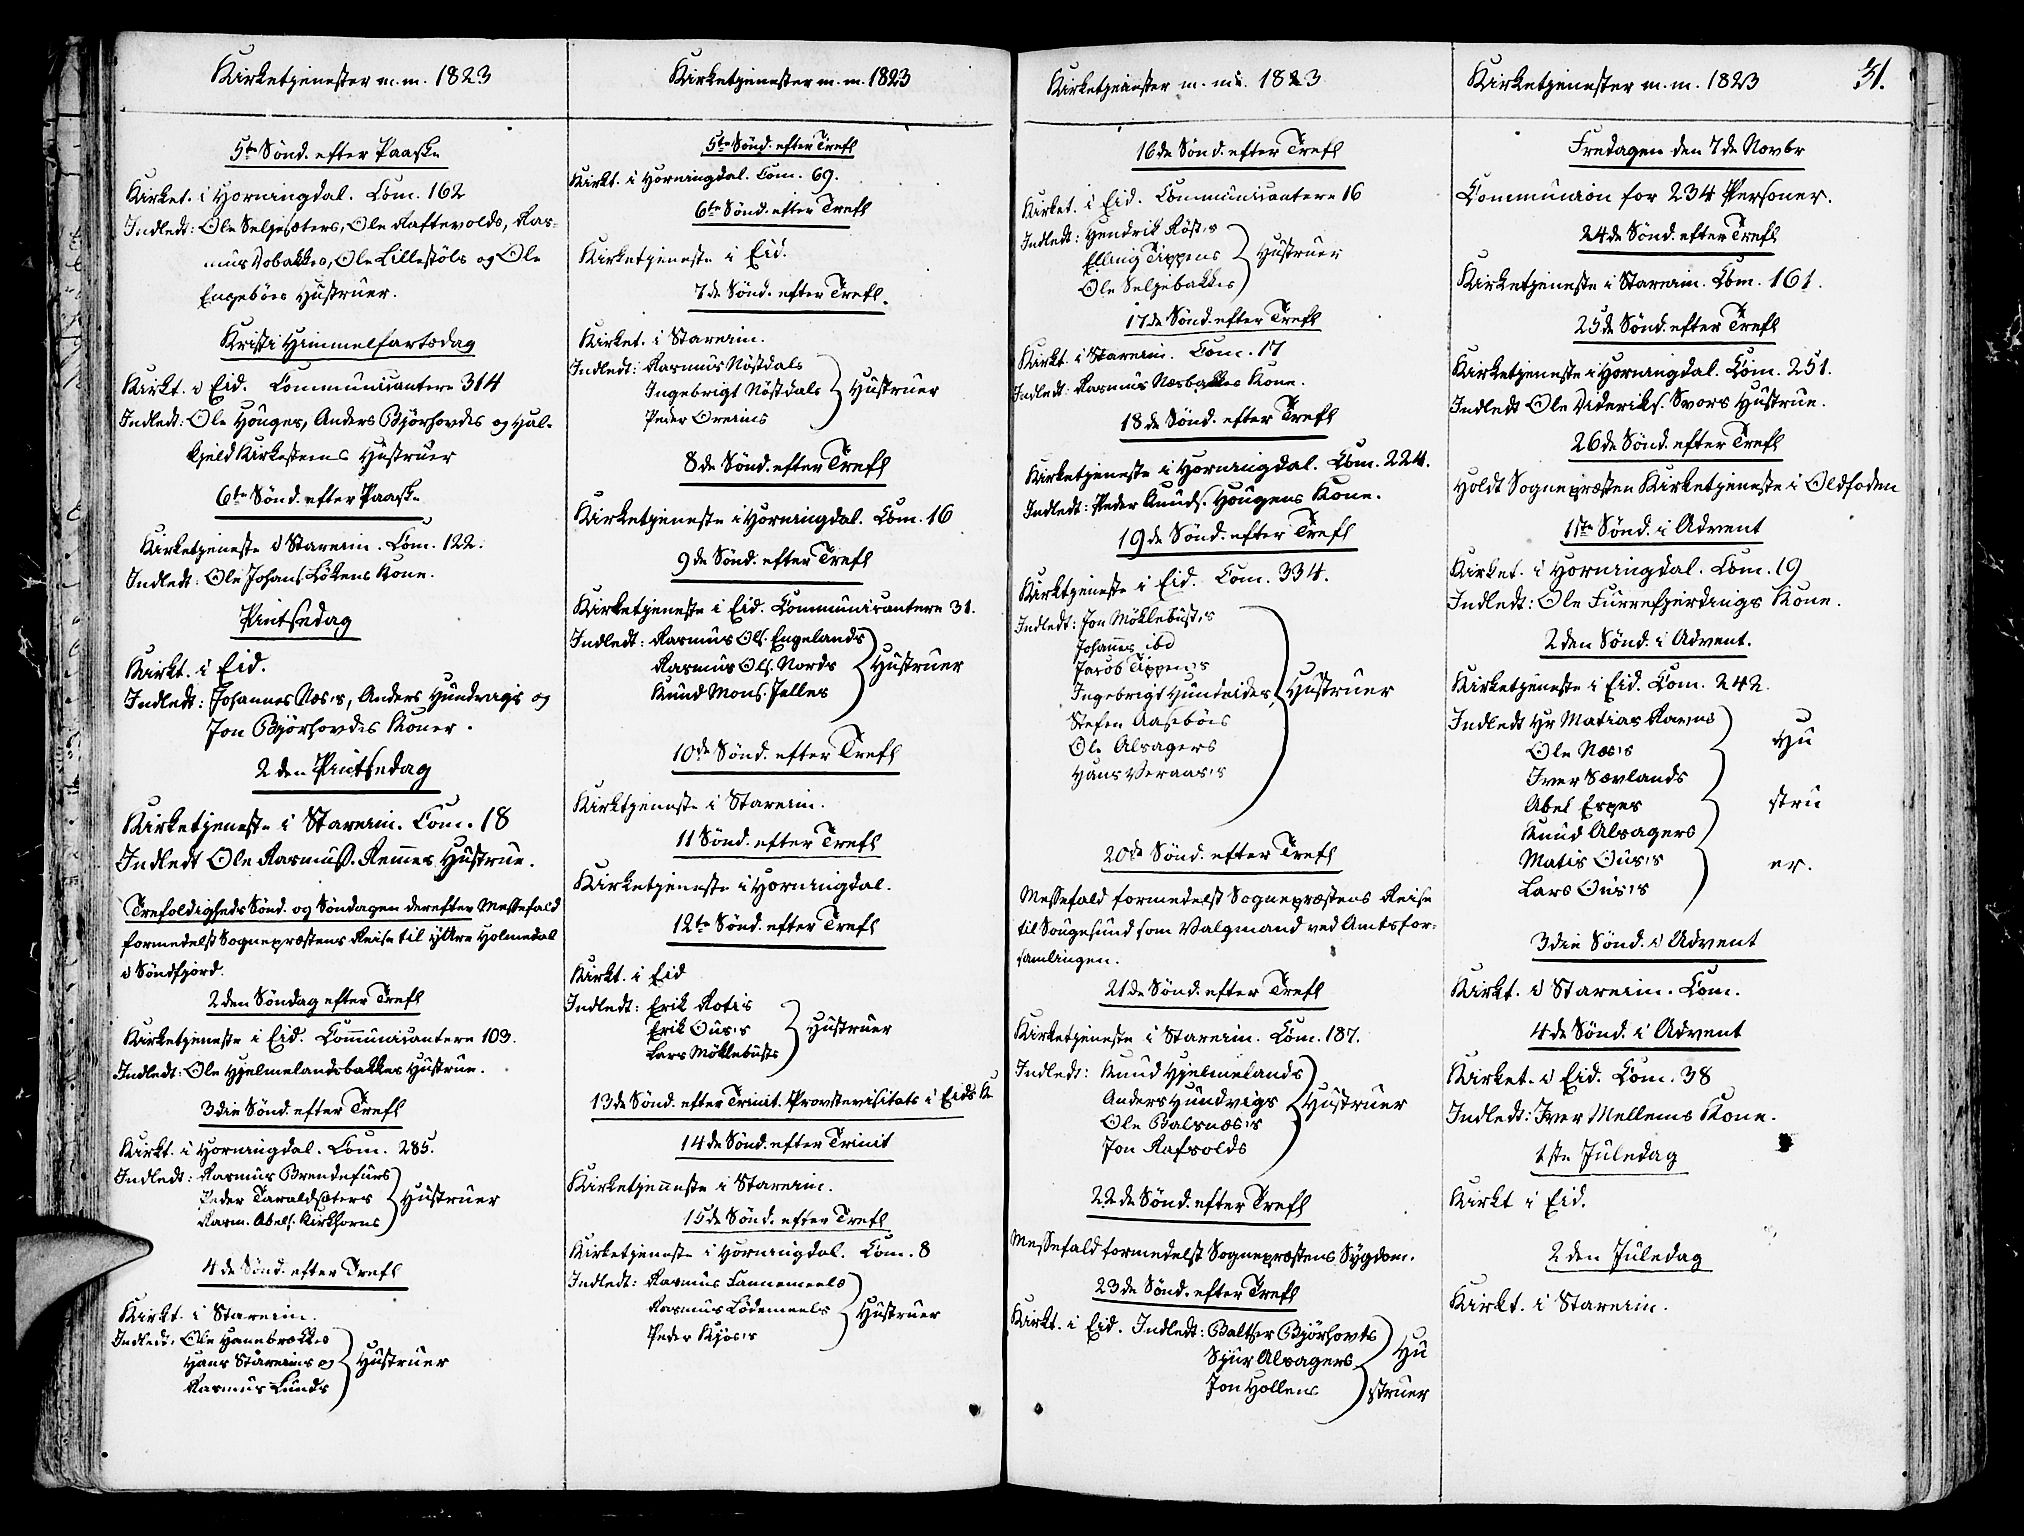 Kirketjenester m.m. 1823
5te Sønd. efter Paaske
Kirket. i Horningdal. Com. 162
Indledt: Ole Seljesæters, Ole Raftevolds, Ras-
mus Dobakkes, Ole Lillestøls og Ole
Engebøes Hustruer.
Kristi Himmelfartsdag
Kirkt. i Eid. Communicantere 314
Indledt: Ole Houges, Anders Bjørhovdes og Hal-
kjeld Kirkesteens Hustruer
6te Sønd. efter Paaske
Kirketjeneste i Starein. Com. 122.
Indledt: Ole Johans. Løkens Kone.
Pintsedag
Kirkt. i Eid.
Indledt: Johannes Næs's, Anders Hundvigs og
Jon Bjørhovdes Koner.
2den Pintsedag
Kirketjeneste i Starein. Com. 18
Indledt Ole Rasmuss. Remes Hustrue.
Trefoldigheds Sønd. og Søndagen derefter Messefald
formedelst Sognepræstens Reise til Yttre Holmedal
i Søndfjord.
2den Søndag efter Trefl
Kirketjeneste i Eid. Communicantere 103.
Indledt: Ole Hjelmelandsbakkes Hustrue.
3die Sønd. efter Trefl
Kirkt. i Horningdal. Com. 285.
Indledt: Rasmus Brendefurs
Peder Taraldsæters
Rasm. Abels. Kirkhorns
Hustruer
4de Sønd. efter Trefl
Kirkt. i Starein.
Indledt. Ole Hannebrekkes
Hans Stareins og
Rasmus Lunds
Hustruer
Kirketjenester m.m. 1823
5te Sønd. efter Trefl
Kirkt. i Horningdal. Com. 69.
6te Sønd. efter Trefl
Kirketjeneste i Eid.
7de Sønd. efter Trefl.
Kirket. i Starein.
Indledt: Rasmus Nøstdals
Ingebrigt Nøstdals
Peder Oreims
Hustruer
8de Sønd. efter Trefl
Kirketjeneste i Horningdal. Com. 16
9de Sønd. efter Trefl
Kirketjeneste i Eid. Communicantere 31.
Indledt: Rasmus Ols. Engelands
Rasmus Ols. Nords
Knud Mons. Jelles
Hustruer
10de Sønd. efter Trefl
Kirktjeneste i Starein.
11 Sønd. efter Trefl
Kirketjeneste i Horningdal.
12te Sønd. efter Trefl
Kirkt. i Eid
Indledt: Erik Rotis
Erik Ous's
Lars Møklebusts
Hustruer
13de Sønd. efter Trinit. Provstevisitats i Eids K.
14de Sønd. efter Trinit
Kirketjeneste i Starein.
15de Sønd. efter Trefl
Kirketjeneste i Horningdal. Com. 8
Indledt: Rasmus Tannemeels
Rasmus Lødemeels
Peder Kjos's
Hustruer
Kirketjenester m. m. 1823
16de Sønd. efter Trefl
Kirket. i Eid. Communicantere 16
Indledt: Hendrik Røst's
Elling Tippens
Ole Seljebakkes
Hustruer
17de Sønd. efter Trefl
Kirkt. i Starein. Com. 17
Indledt: Rasmus Næsbakkes Kone.
18de Sønd. efter Trefl
Kirketjeneste i Horningdal. Com. 224.
Indledt: Peder Knuds. Hougens Kone.
19de Sønd. efter Trefl
Kirktjeneste i Eid. Com. 334.
Indledt: Jon Møklebust's
Johannes ibd
Jacob Tippen's
Ingebrigt Hundeides
Stefen Aasebøes
Ole Alsagers
Hans Veraas's
Hustruer
20de Sønd. efter Trefl
Messefald formedelst Sognepræstens Reise
til Sougesund som Valgmand ved Amtsfor-
samlingen.
21de Sønd. efter Trefl
Kirketjeneste i Starein. Com. 187.
Indledt: Knud Hjelmelands
Anders Hundvigs
Ole Balsnæs's
Jon Rafvolds
Hustruer
22de Sønd. efter Trefl
Messefald formedelst Sognepræstens Sygdom.
23de Sønd. efter Trefl
Kirkt. i Eid. Indledt: Balther Bjørhovds
Sjur Alsagers
Jon Hollens
Hu
struer
Kirketjenester m.m. 1823
31.
Fredagen den 7de Novbr
Communion for 234 Personer.
24de Sønd. efter Trefl
Kirketjeneste i Starein. Com. 161.
25de Sønd. efter Trefl
Kirketjeneste i Horningdal. Com. 251.
Indledt Ole Dideriks. Svors Hustrue.
26de Sønd. efter Trefl
Holdt Sognepræsten Kirketjeneste i Oldfoden
1ste Sønd. i Advent
Kirket. i Horningdal. Com. 19
Indledt: Ole Furrefjerdings Kone.
2den Sønd. i Advent.
Kirketjeneste i Eid. Com. 242.
Indledt Hr Matias Ravns
Ole Næs's
Iver Sævlands
Abel Espes
Knud Alsagers
Matis Ous's
Lars Ous's
Hu
stru
er.
3die Sønd. i Advent
Kirkt. i Starein. Com.
4de Sønd. i Advent
Kirket. i Eid. Com. 38
Indledt: Iver Mellems Kone.
1ste Juledag
Kirkt i Eid.
2den Juledag
Kirkt. i Starein.